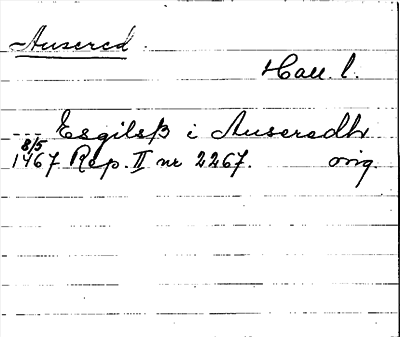 Ausered.
Hall. l.
--- Esgilsß i Ausersdh
8/5
1467 Rep. II nr 2267. orig.